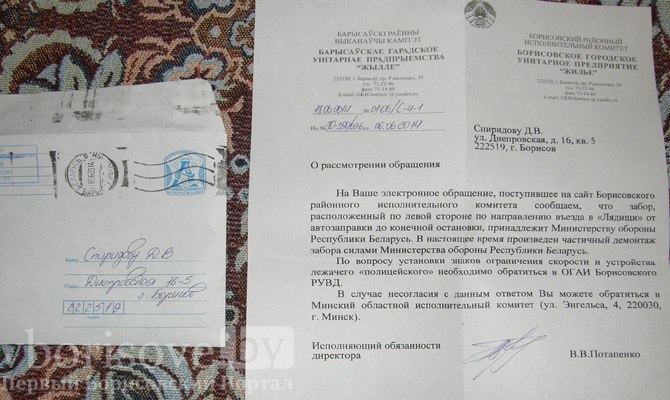 БАРЫСАЎСКІ РАЁННЫ
ВЫКАНАЎЧЫ КАМІТЭТ
БАРЫСАЎСКАЕ ГАРАДСКОЕ
УНІТАРНАЕ ПРАДПРЫЕМСТВА
"ЖЫЛЛЁ"
222120, г. Барысаў, пр. Рэвалюцыі, 39
факс 73-14-80
18.06.2014
На № 06.06.2014
БОРИСОВСКИЙ РАЙОННЫЙ
ИСПОЛНИТЕЛЬНЫЙ КОМИТЕТ
БОРИСОВСКОЕ ГОРОДСКОЕ
УНИТАРНОЕ ПРЕДПРИЯТИЕ
"ЖИЛЬЕ"
Спиридову Д.В.
ул. Днепровская, д. 16, кв. 5
222519, г. Борисов
О рассмотрении обращения
На Ваше электронное обращение, поступившее на сайт Борисовского
районного исполнительного комитета сообщаем, что забор,
расположенный по левой стороне по направлению въезда в «Лядищи» от
автозаправки до конечной остановки, принадлежит Министерству обороны
Республики Беларусь. В настоящее время произведен частичный демонтаж
забора силами Министерства обороны Республики Беларусь.
По вопросу установки знаков ограничения скорости и устройства
лежачего «полицейского» необходимо обратиться в ОГАИ Борисовского
РУВД.
В случае несогласия с данным ответом Вы можете обратиться в
Минский областной исполнительный комитет (ул. Энгельса, 4, 220030,
г. Минск).
Исполняющий обязанности
директора
В.В.Потапенко
Спиридову Д В
Днепровская 16-5
г Борисов
222519
vborisove.by
Первый Борисовский Портал